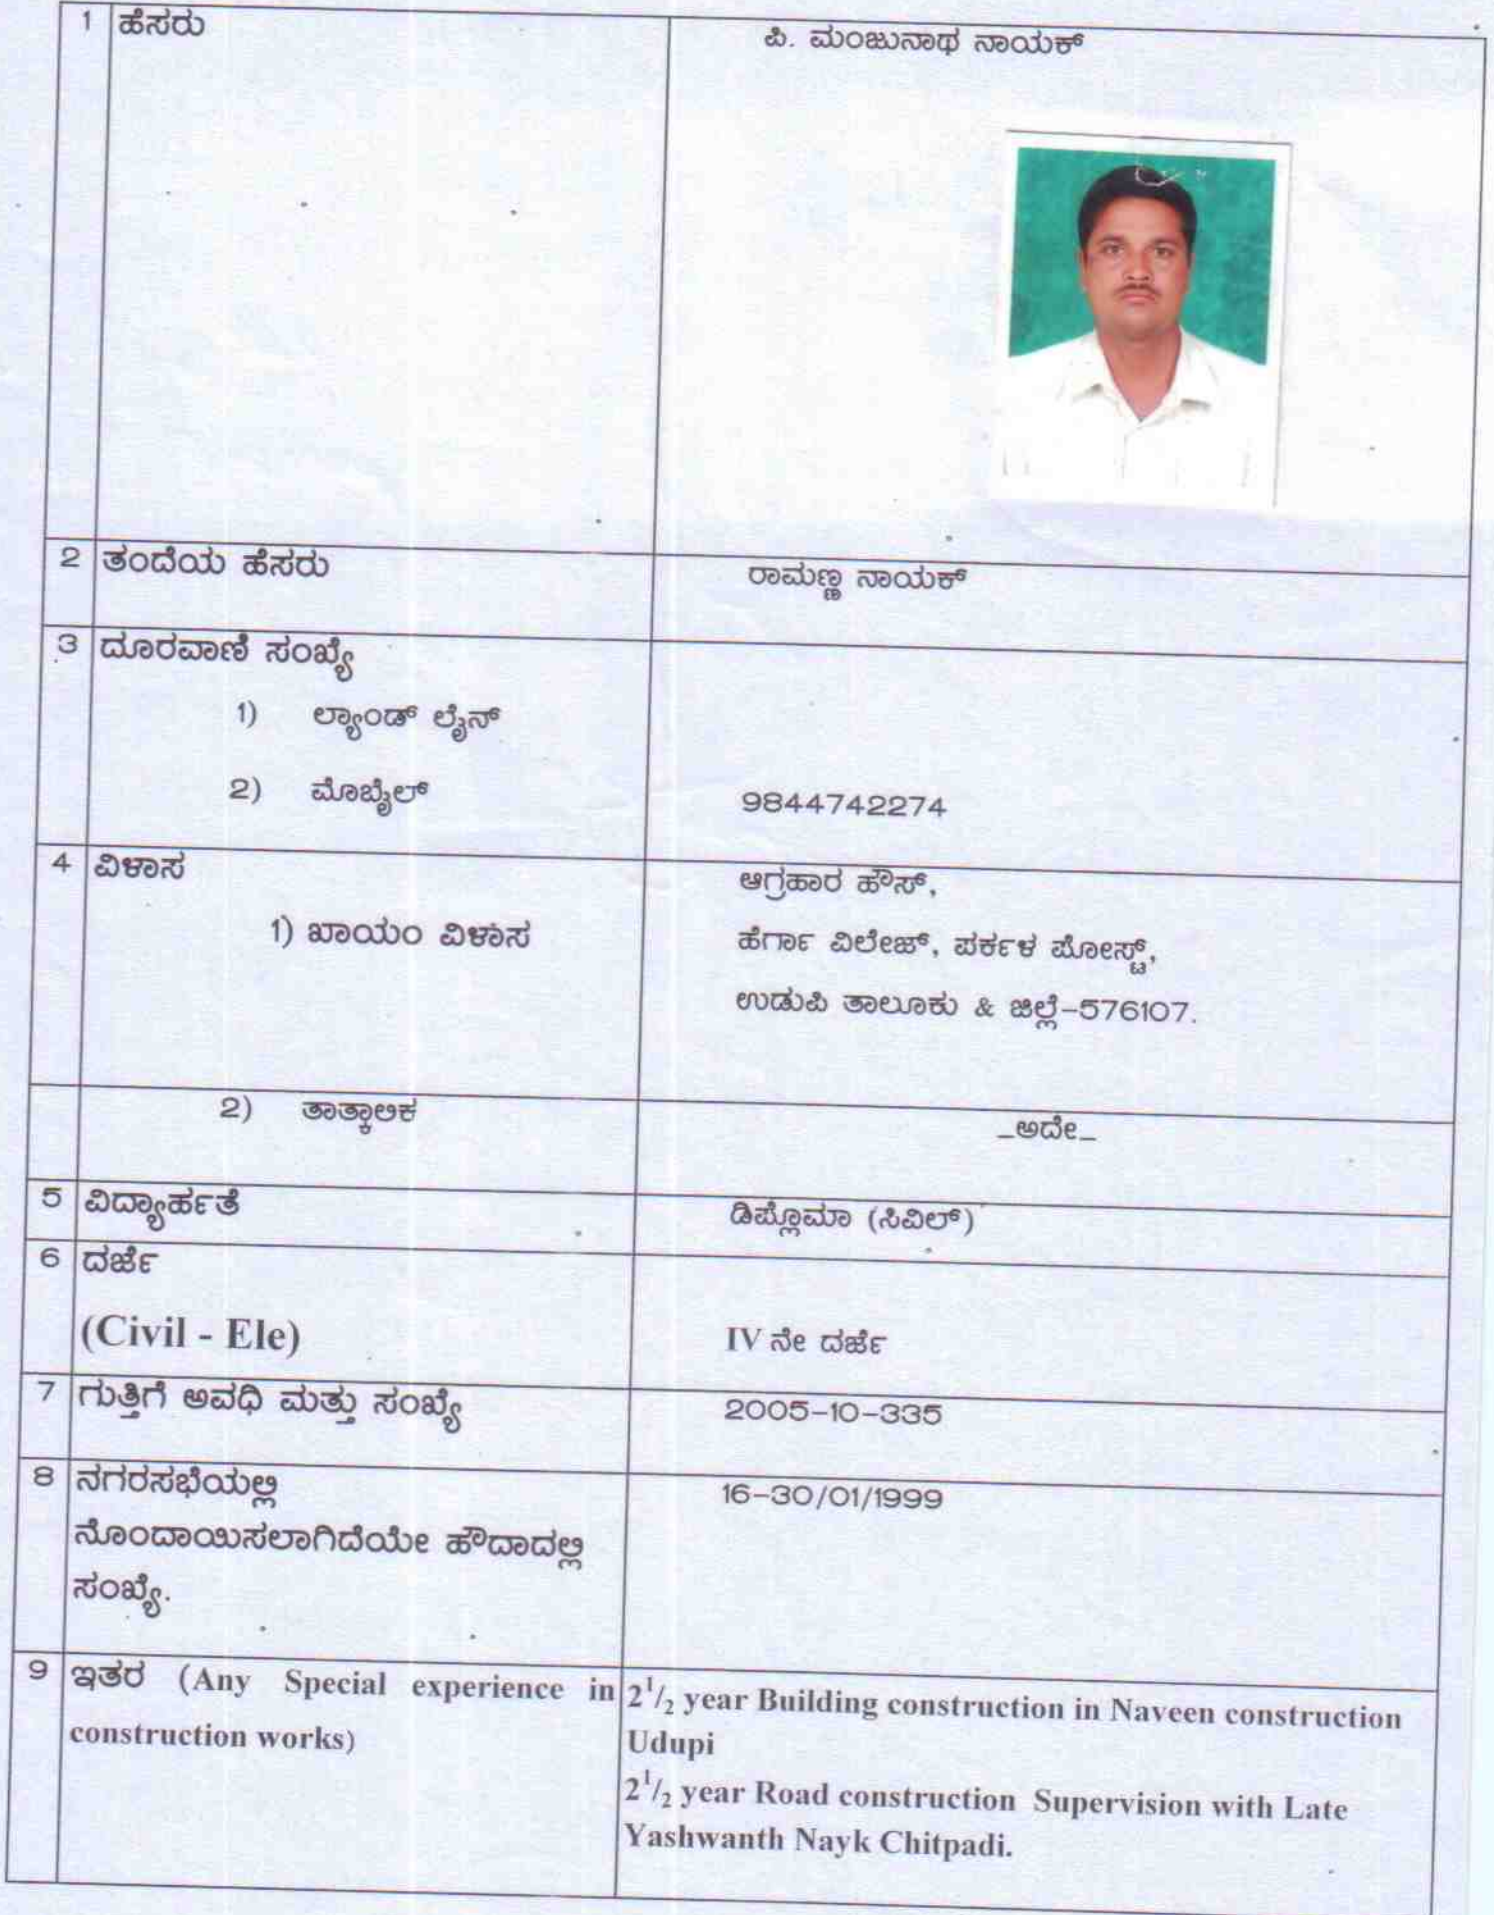 1 ಹೆಸರು ಪಿ. ಮಂಜುನಾಥ ನಾಯಕ್
2 ತಂದೆಯ ಹೆಸರು ರಾಮಣ್ಣ ನಾಯಕ್
3 ದೂರವಾಣಿ ಸಂಖ್ಯೆ
1) ಲ್ಯಾಂಡ್ ಲೈನ್
2) ಮೊಬೈಲ್ 9844742274
4 ವಿಳಾಸ ಆಗ್ರಹಾರ ಹೌಸ್,
1) ಖಾಯಂ ವಿಳಾಸ ಹೆರ್ಗಾ ವಿಲೇಜ್, ಪರ್ಕಳ ಪೋಸ್ಟ್,
ಉಡುಪಿ ತಾಲೂಕು & ಜಿಲ್ಲೆ-576107.
2) ತಾತ್ಕಾಲಿಕ _ಅದೇ_
5 ವಿದ್ಯಾರ್ಹತೆ ಡಿಪ್ಲೊಮಾ (ಸಿವಿಲ್)
6 ದರ್ಜೆ
(Civil - Ele) IV ನೇ ದರ್ಜೆ
7 ಗುತ್ತಿಗೆ ಅವಧಿ ಮತ್ತು ಸಂಖ್ಯೆ 2005-10-335
8 ನಗರಸಭೆಯಲ್ಲಿ 16-30/01/1999
ನೊಂದಾಯಿಸಲಾಗಿದೆಯೇ ಹೌದಾದಲ್ಲಿ
ಸಂಖ್ಯೆ.
9 ಇತರ (Any Special experience in 2 1/2 year Building construction in Naveen construction
construction works) Udupi
2 1/2 year Road construction Supervision with Late
Yashwanth Nayk Chitpadi.